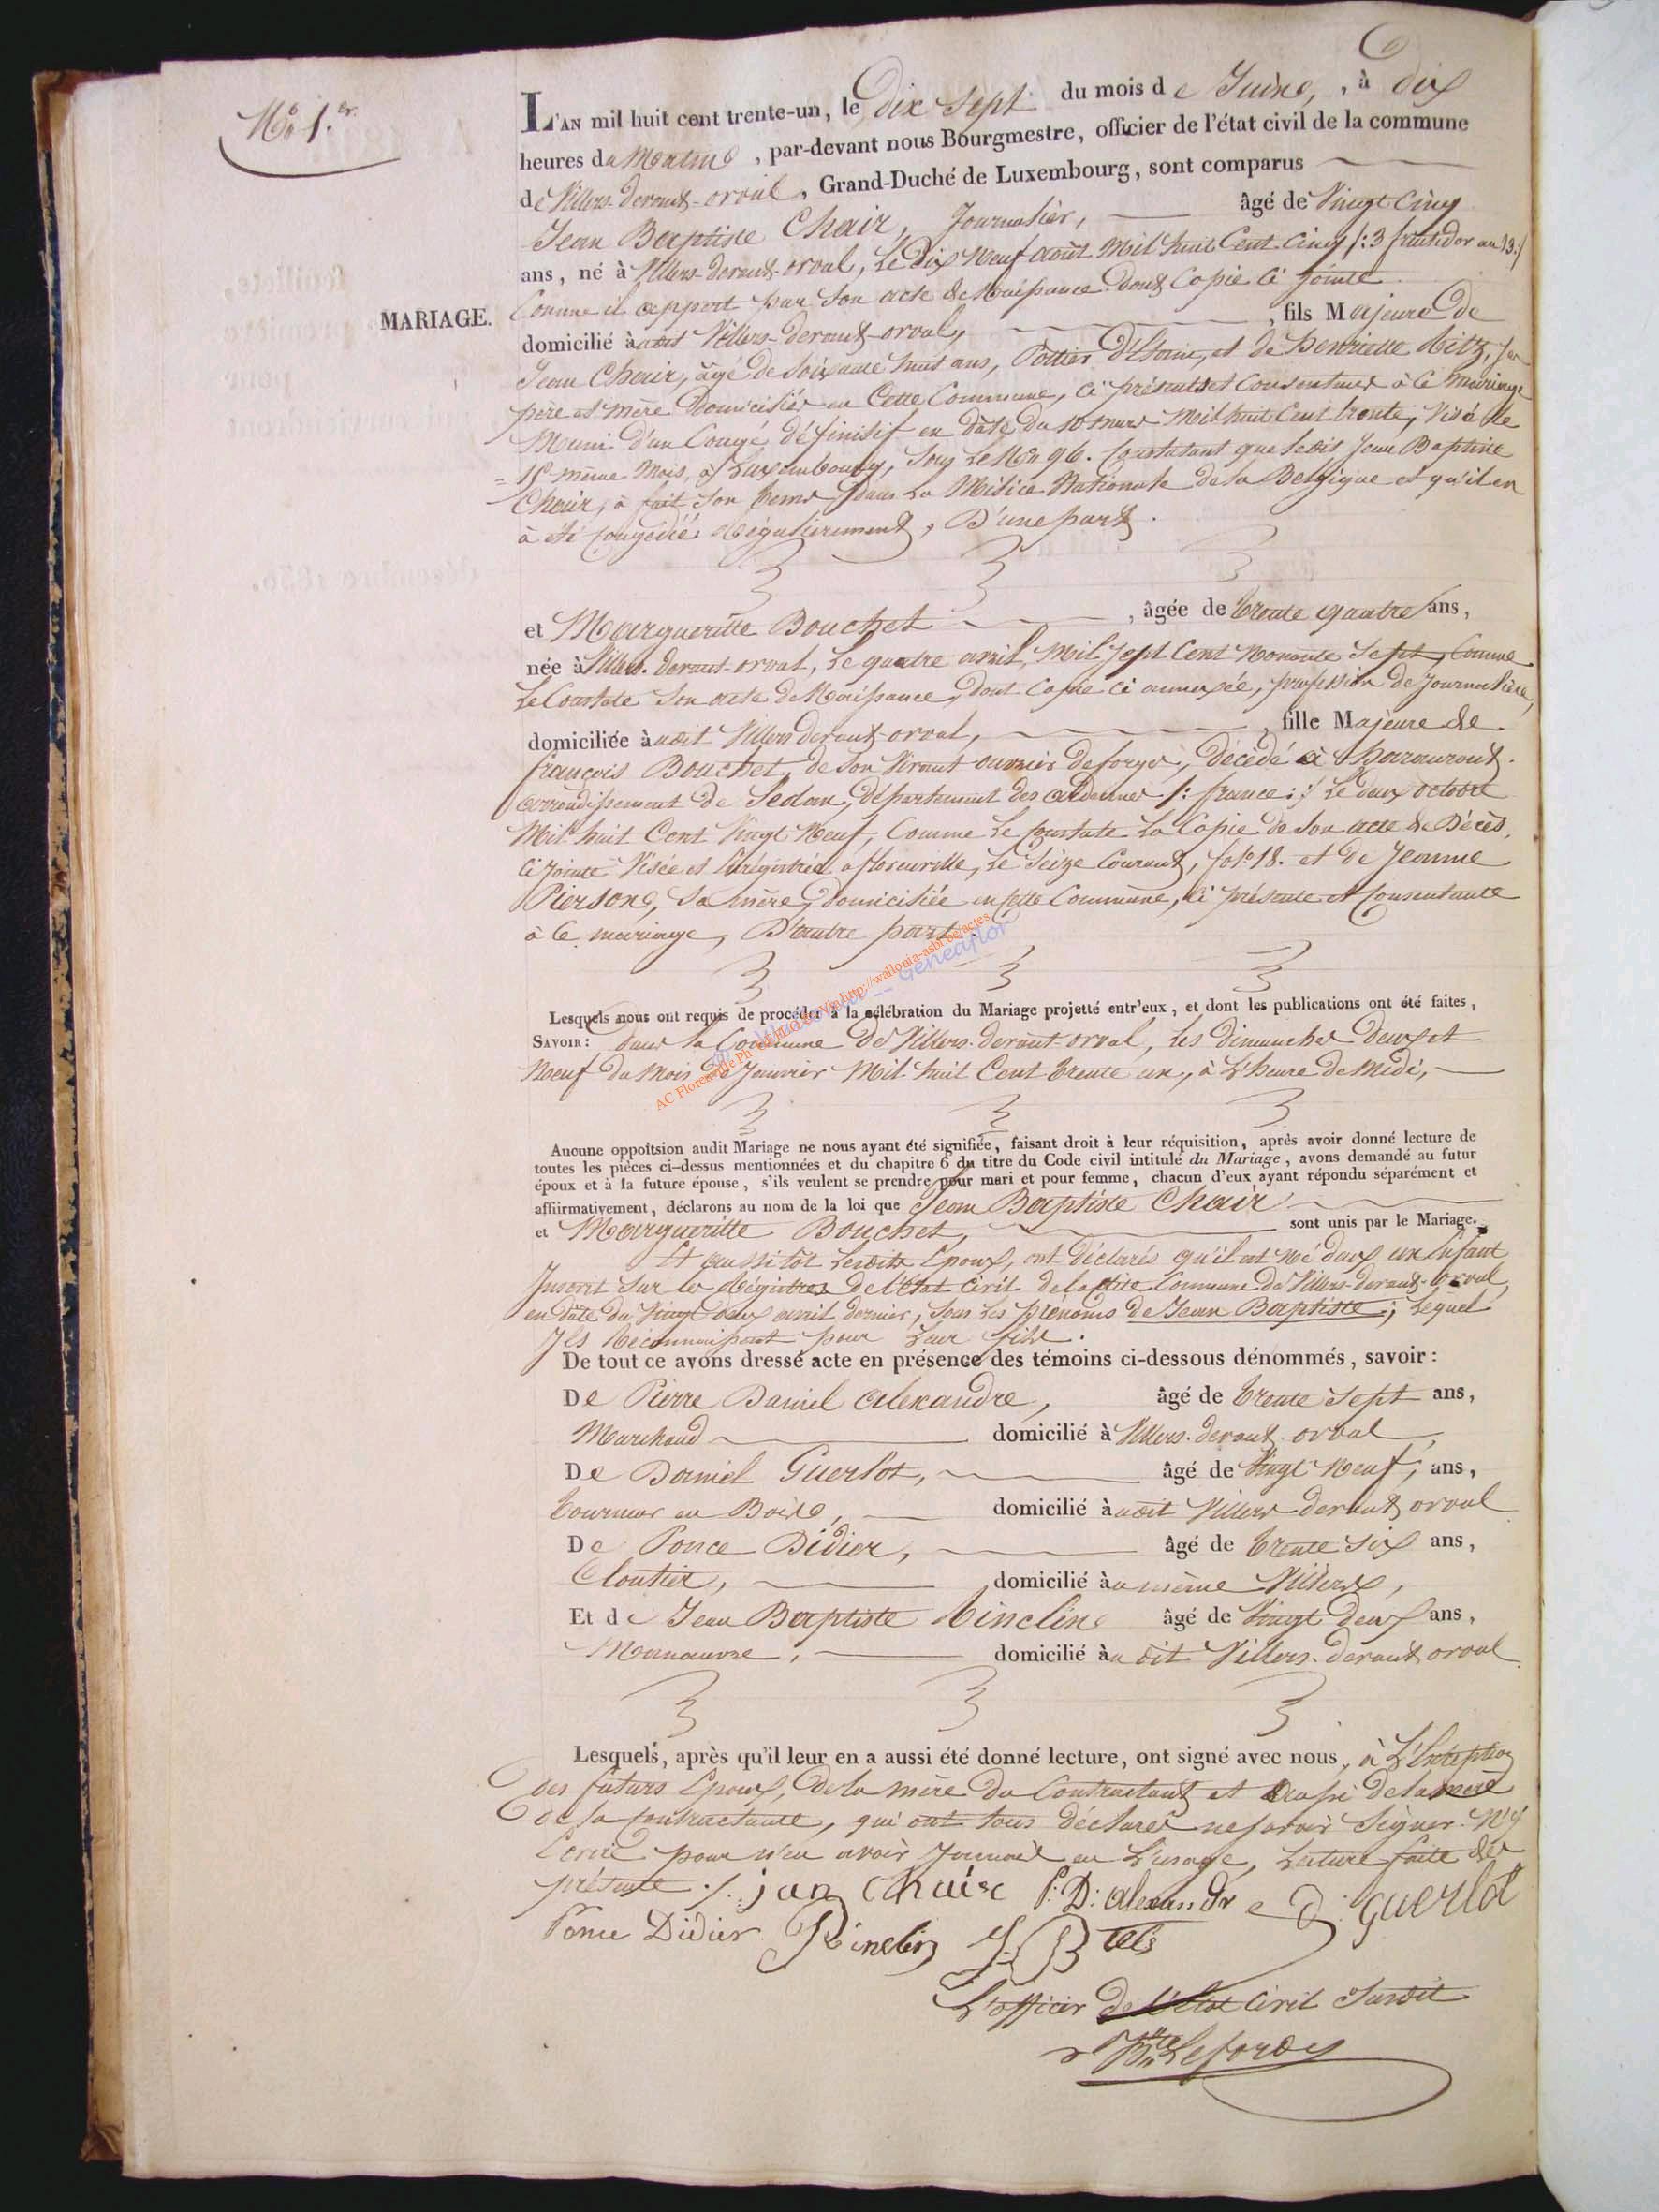 N.o 1.er
L'AN mil huit cent trente-un, le Dix Sept du mois de Juin, à dix
heures du Matin, par-devant nous Bourgmestre, officier de l'état civil de la commune
de Villers-devant-orval, Grand-Duché de Luxembourg, sont comparus
Jean Baptiste Chair, Journalier, âgé de Vingt Cinq
ans, né à Villers-devant-orval, Le Dix Neuf août Mil huit Cent Cinq /: 3 fructidor an 13:/
Comme il appert par Son acte de Naissance dont Copie ci Jointe
MARIAGE.
domicilié audit Villers-devant-orval, fils Majeure De
Jean Chair, âgé de Soixante huit ans, Pottier D'Etain, et de Henriette
père et mère Domiciliés en Cette Commune, ci présents et Consentans à Ce mariage
Muni d'un Congé définitif en date du 10 mars Mil huit Cent trente, Visé le
15 même Mois, à Luxembourg, Sous Le N.o 96. Constatant que ledit Jean Baptiste
Chair, à fait Son tems dans La Milice Nationale de la Belgique et qu'il en
à été Congédié Régulièrement, D'une part.
et Margueritte Bouchet, âgée de trente quatre ans,
née à Villers-devant-orval, Le quatre avril Mil Sept Cent Nonante Sept, Comme
Le Constate Son acte de Naissance, dont Copie ci annexée, profession de Journalière,
domiciliée audit Villers devant-orval, fille Majeure de
François Bouchet, de Son Vivant ouvrier de forges, Décédé à
arrondissement de Sedan, département des ardennes /: france :/ Le deux octobre
Mil huit Cent Vingt Neuf, Comme Le Constate La Copie de Son acte de Décès,
ci Jointe Visée et Enrégistrée a florenville, Le Seize Courant, fol.o 18. et de Jeanne
Pierson, Sa mère, domiciliée en Cette Commune, ci présente et Consentante
à Ce mariage, D'autre part.
Lesquels nous ont requis de procéder à la célébration du Mariage projetté entr'eux, et dont les publications ont été faites,
SAVOIR: dans la Commune De Villers-devant-orval, Les Dimanches Deux et
Neuf du Mois De Janvier Mil huit Cent trente un, à L'heure de Midi,
AC Florenville Ph http://wallonia-asbl.be/actes
Geneaflor
Aucune oppoitsion audit Mariage ne nous ayant été signifiée, faisant droit à leur réquisition, après avoir donné lecture de
toutes les pièces ci-dessus mentionnées et du chapitre 6 du titre du Code civil intitulé du Mariage, avons demandé au futur
époux et à la future épouse, s'ils veulent se prendre pour mari et pour femme, chacun d'eux ayant répondu séparément et
affiirmativement, déclarons au nom de la loi que Jean Baptiste Chair
et Margueritte Bouchet, sont unis par le Mariage.
Et aussitôt Lesdits Epoux, ont déclarés qu'il est Né d'eux un Enfant
Inscrit Sur les Régistres de l'état Civil de la dite Commune de Villers-devant-orval,
en date du Vingt Deux avril dernier, Sous Les prénoms de Jean Baptiste; Lequel
Ils Reconnaissent pour Leur fils.
De tout ce avons dressé acte en présence des témoins ci-dessous dénommés, savoir:
De Pierre Daniel Alexandre, âgé de trente Sept ans,
Marchand domicilié à Villers-devant-orval,
De Daniel Guerlot, âgé de Vingt Neuf, ans,
tourneur en Bois, domicilié audit Villers devant orval
De Ponce Didier, âgé de trente Six ans,
Cloutier, domicilié au même Villers,
Et de Jean Baptiste Rinclin âgé de Vingt deux ans,
Manœuvre, domicilié audit Villers-devant orval
Lesquels, après qu'il leur en a aussi été donné lecture, ont signé avec nous, à L'Exception
des futurs Epoux, de la mère du Contractant et aussi de la mere
de la Contractante, qui ont tous déclarés ne Savoir Signer Ny
Ecrire pour n'en avoir Jamais eu L'usage, Lecture faite des
présente ./. jan Chair P: D: alexandre d: Guerlot
Ponce Didier Rinclin J B
L'officier De l'état Civil Susdit